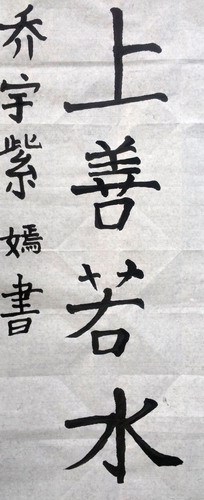 上善若水
乔宇紫嫣書